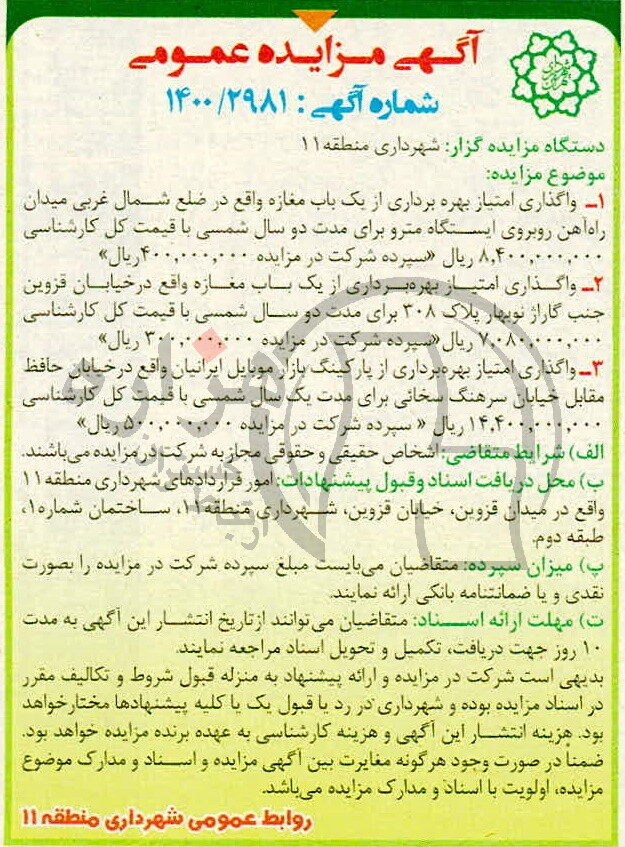 آگهی مزایده عمومی
شماره آگهی: ۱۴۰۰/۲۹۸۱
دستگاه مزایده گزار: شهرداری منطقه۱۱
موضوع مزایده:
۱ـ واگذاری امتیاز بهره برداری از یک باب مغازه واقع در ضلع شمال غربی میدان
راه‌آهن روبروی ایستگاه مترو برای مدت دو سال شمسی با قیمت کل کارشناسی
۸,۴۰۰,۰۰۰,۰۰۰ ریال «سپرده شرکت در مزایده ۴۰۰,۰۰۰,۰۰۰ریال»
۲ـ واگذاری امتیاز بهره‌برداری از یک باب مغازه واقع درخیابان قزوین
جنب گاراژ نوبهار پلاک ۳۰۸ برای مدت دو سال شمسی با قیمت کل کارشناسی
۷,۰۸۰,۰۰۰,۰۰۰ ریال«سپرده شرکت در مزایده ۳۰۰,۰۰۰,۰۰۰ ریال»
۳ـ واگذاری امتیاز بهره‌برداری از پارکینگ بازار موبایل ایرانیان واقع درخیابان حافظ
مقابل خیابان سرهنگ سخائی برای مدت یک سال شمسی با قیمت کل کارشناسی
۱۴,۴۰۰,۰۰۰,۰۰۰ ریال « سپرده شرکت در مزایده ۵۰۰,۰۰۰,۰۰۰ ریال»
الف) شرایط متقاضی: اشخاص حقیقی و حقوقی مجاز به شرکت در مزایده می‌باشند.
ب) محل دریافت اسناد وقبول پیشنهادات: امور قراردادهای شهرداری منطقه۱۱
واقع در میدان قزوین، خیابان قزوین، شهرداری منطقه۱۱، ساختمان شماره۱،
طبقه دوم.
پ) میزان سپرده: متقاضیان می‌بایست مبلغ سپرده شرکت در مزایده را بصورت
نقدی و یا ضمانتنامه بانکی ارائه نمایند.
ت) مهلت ارائه اسناد: متقاضیان می‌توانند ازتاریخ انتشار این آگهی به مدت
۱۰ روز جهت دریافت، تکمیل و تحویل اسناد مراجعه نمایند.
بدیهی است شرکت در مزایده و ارائه پیشنهاد به منزله قبول شروط و تکالیف مقرر
در اسناد مزایده بوده و شهرداری در رد یا قبول یک یا کلیه پیشنهادها مختارخواهد
بود. هزینه انتشار این آگهی و هزینه کارشناسی به عهده برنده مزایده خواهد بود.
ضمناً در صورت وجود هرگونه مغایرت بین آگهی مزایده و اسناد و مدارک موضوع
مزایده، اولویت با اسناد و مدارک مزایده می‌باشد.
روابط عمومی شهرداری منطقه ۱۱